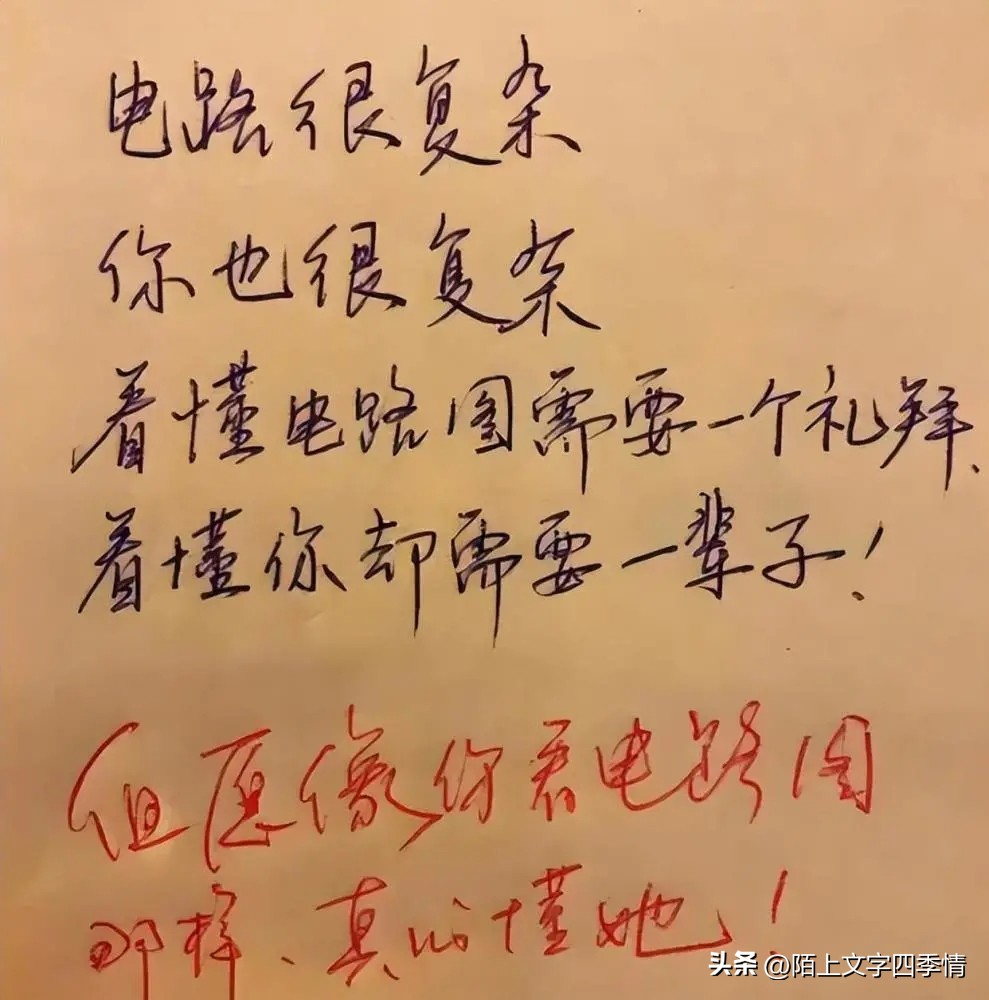 电路很复杂
你也很复杂
看懂电路图需要一个礼拜、
看懂你却需要一辈子！
但愿像你看电路图
那样、真心懂她！
头条 @陌上文字四季情